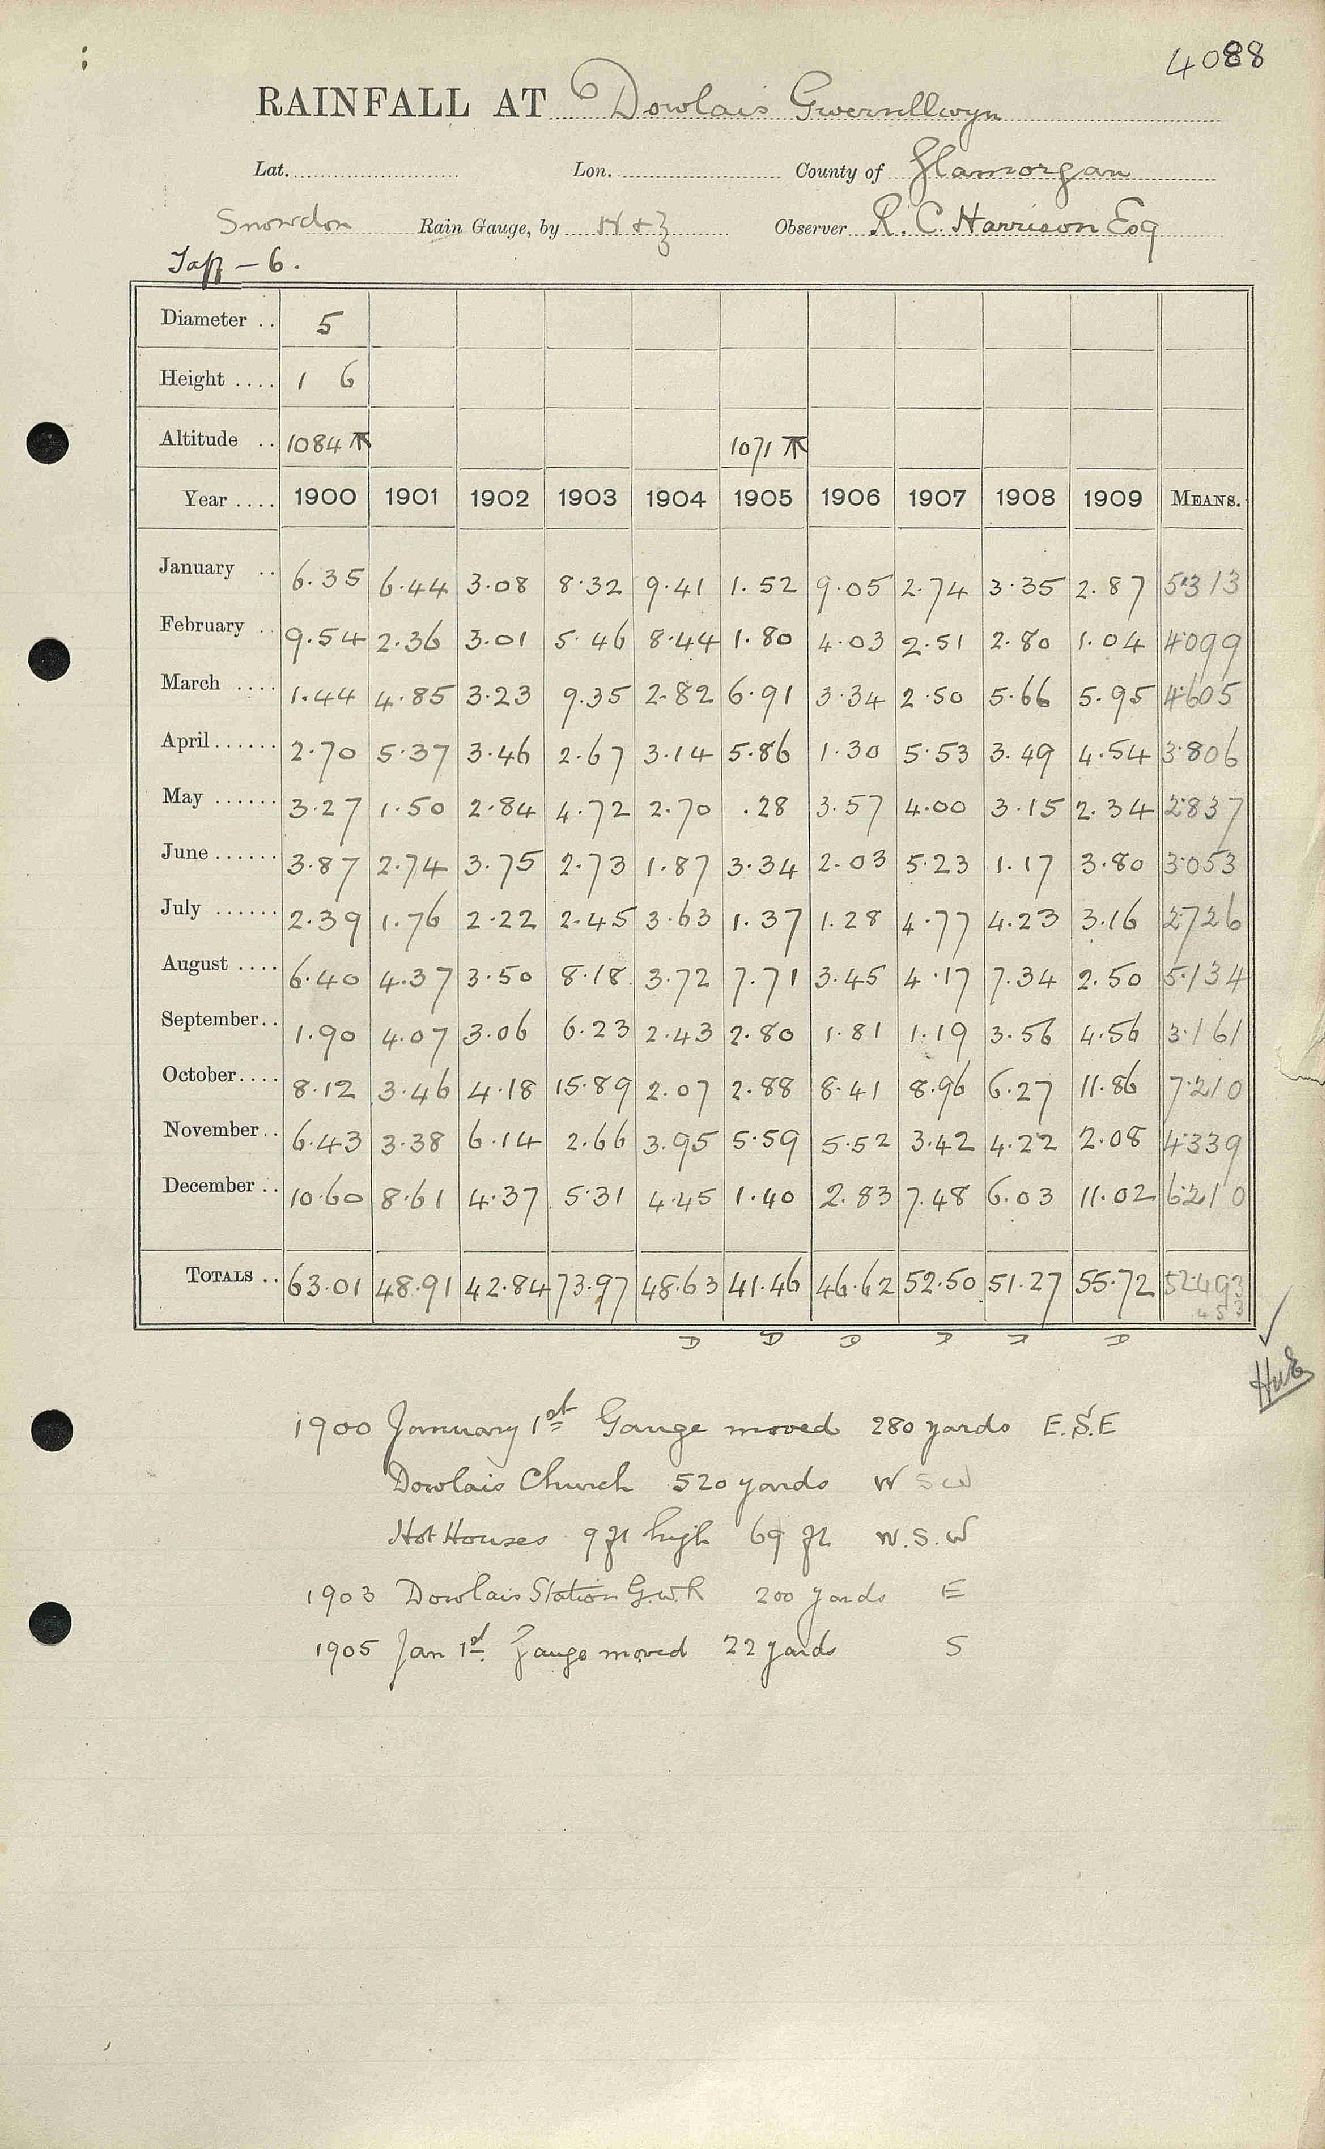 4088
RAINFALL AT Dowlais Gwernllwyn
Lat. Lon. County of Glamorgan
Snowdon Rain Gauge, by N & Z Observer R. C. Harrison Esq
Taff – 6.
Diameter .. 5
Height .... 1 6
Altitude .. 1084 1071
Year .... 1900 1901 1902 1903 1904 1905 1906 1907 1908 1909 MEANS.
January .. 6.35 6.44 3.08 8.32 9.41 1.52 9.05 2.74 3.35 2.87 5.313
February .. 9.54 2.36 3.01 5.46 8.44 1.80 4.03 2.51 2.80 1.04 4.099
March .... 1.44 4.85 3.23 9.35 2.82 6.91 3.34 2.50 5.66 5.95 4.605
April...... 2.70 5.37 3.46 2.67 3.14 5.86 1.30 5.53 3.49 4.54 3.806
May ...... 3.27 1.50 2.84 4.72 2.70 .28 3.57 4.00 3.15 2.34 2.837
June...... 3.87 2.74 3.75 2.73 1.87 3.34 2.03 5.23 1.17 3.80 3.053
July ...... 2.39 1.76 2.22 2.45 3.63 1.37 1.28 4.77 4.23 3.16 2.726
August .... 6.40 4.37 3.50 8.18 3.72 7.71 3.45 4.17 7.34 2.50 5.134
September.. 1.90 4.07 3.06 6.23 2.43 2.80 1.81 1.19 3.56 4.56 3.161
October.... 8.12 3.46 4.18 15.89 2.07 2.88 8.41 8.96 6.27 11.86 7.210
November.. 6.43 3.38 6.14 2.66 3.95 5.59 5.52 3.42 4.22 2.08 4.339
December .. 10.60 8.61 4.37 5.31 4.45 1.40 2.83 7.48 6.03 11.02 6.210
TOTALS .. 63.01 48.91 42.84 73.97 48.63 41.46 46.62 52.50 51.27 55.72 52.493
453
D D D D D D
1900 January 1st Gauge moved 280 yards E.S.E
Dowlais Church 520 yards W S W
Hot Houses 9 ft high 69 ft W.S.W
1903 Dowlais Station G.W.R 200 yards E
1905 Jan 1st Gauge moved 22 yards S